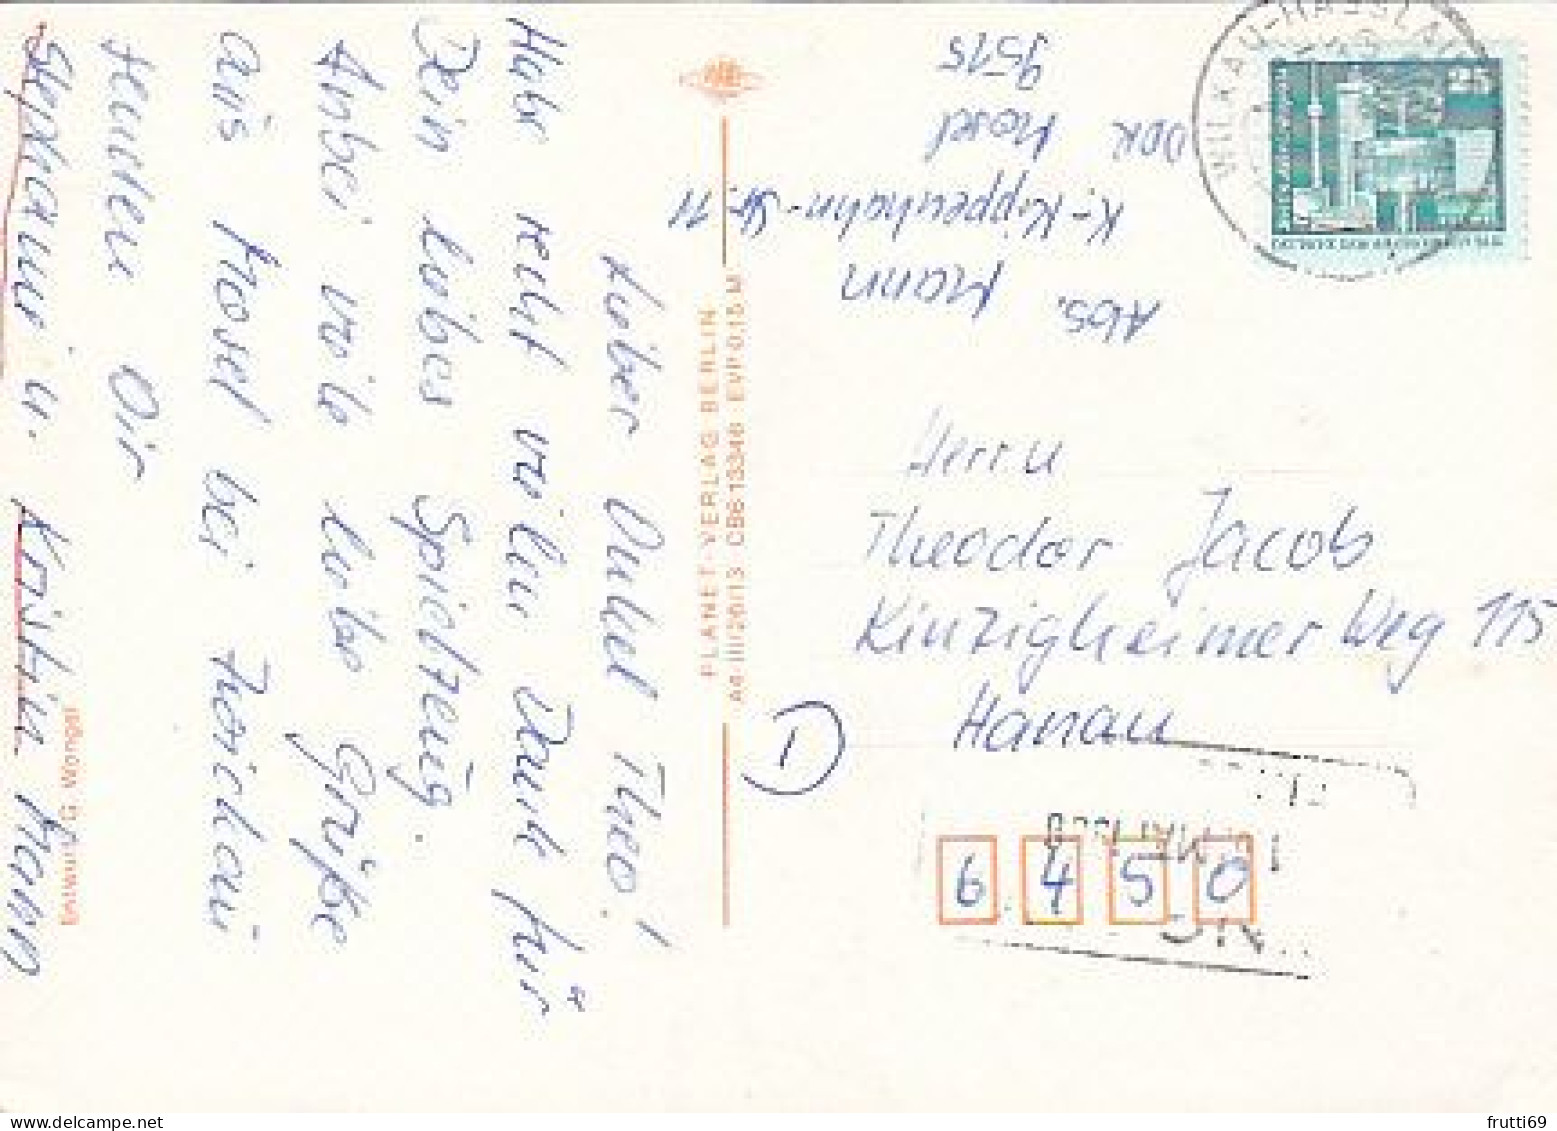 Lieber Onkel Theo!
Habe recht vielen Dank für
Dein liebes Spielzeug.
Anbei viele liebe Grüße
aus Mosel bei Zwickau
senden Dir
Stephanie u. Kristin Mann
Entwurf: G. Wongel
PLANET-VERLAG BERLIN
A4-III/26/13 CB6 133 46 EVP 0,15 M
Abs. Mann
K.-Kippenhahn-Str. 11
DDR Mosel
9575
WILKAU-HASSLAU
25
1
Herrn
Theodor Jacob
Kinzigheimer Weg 115
Hanau
6 4 5 0